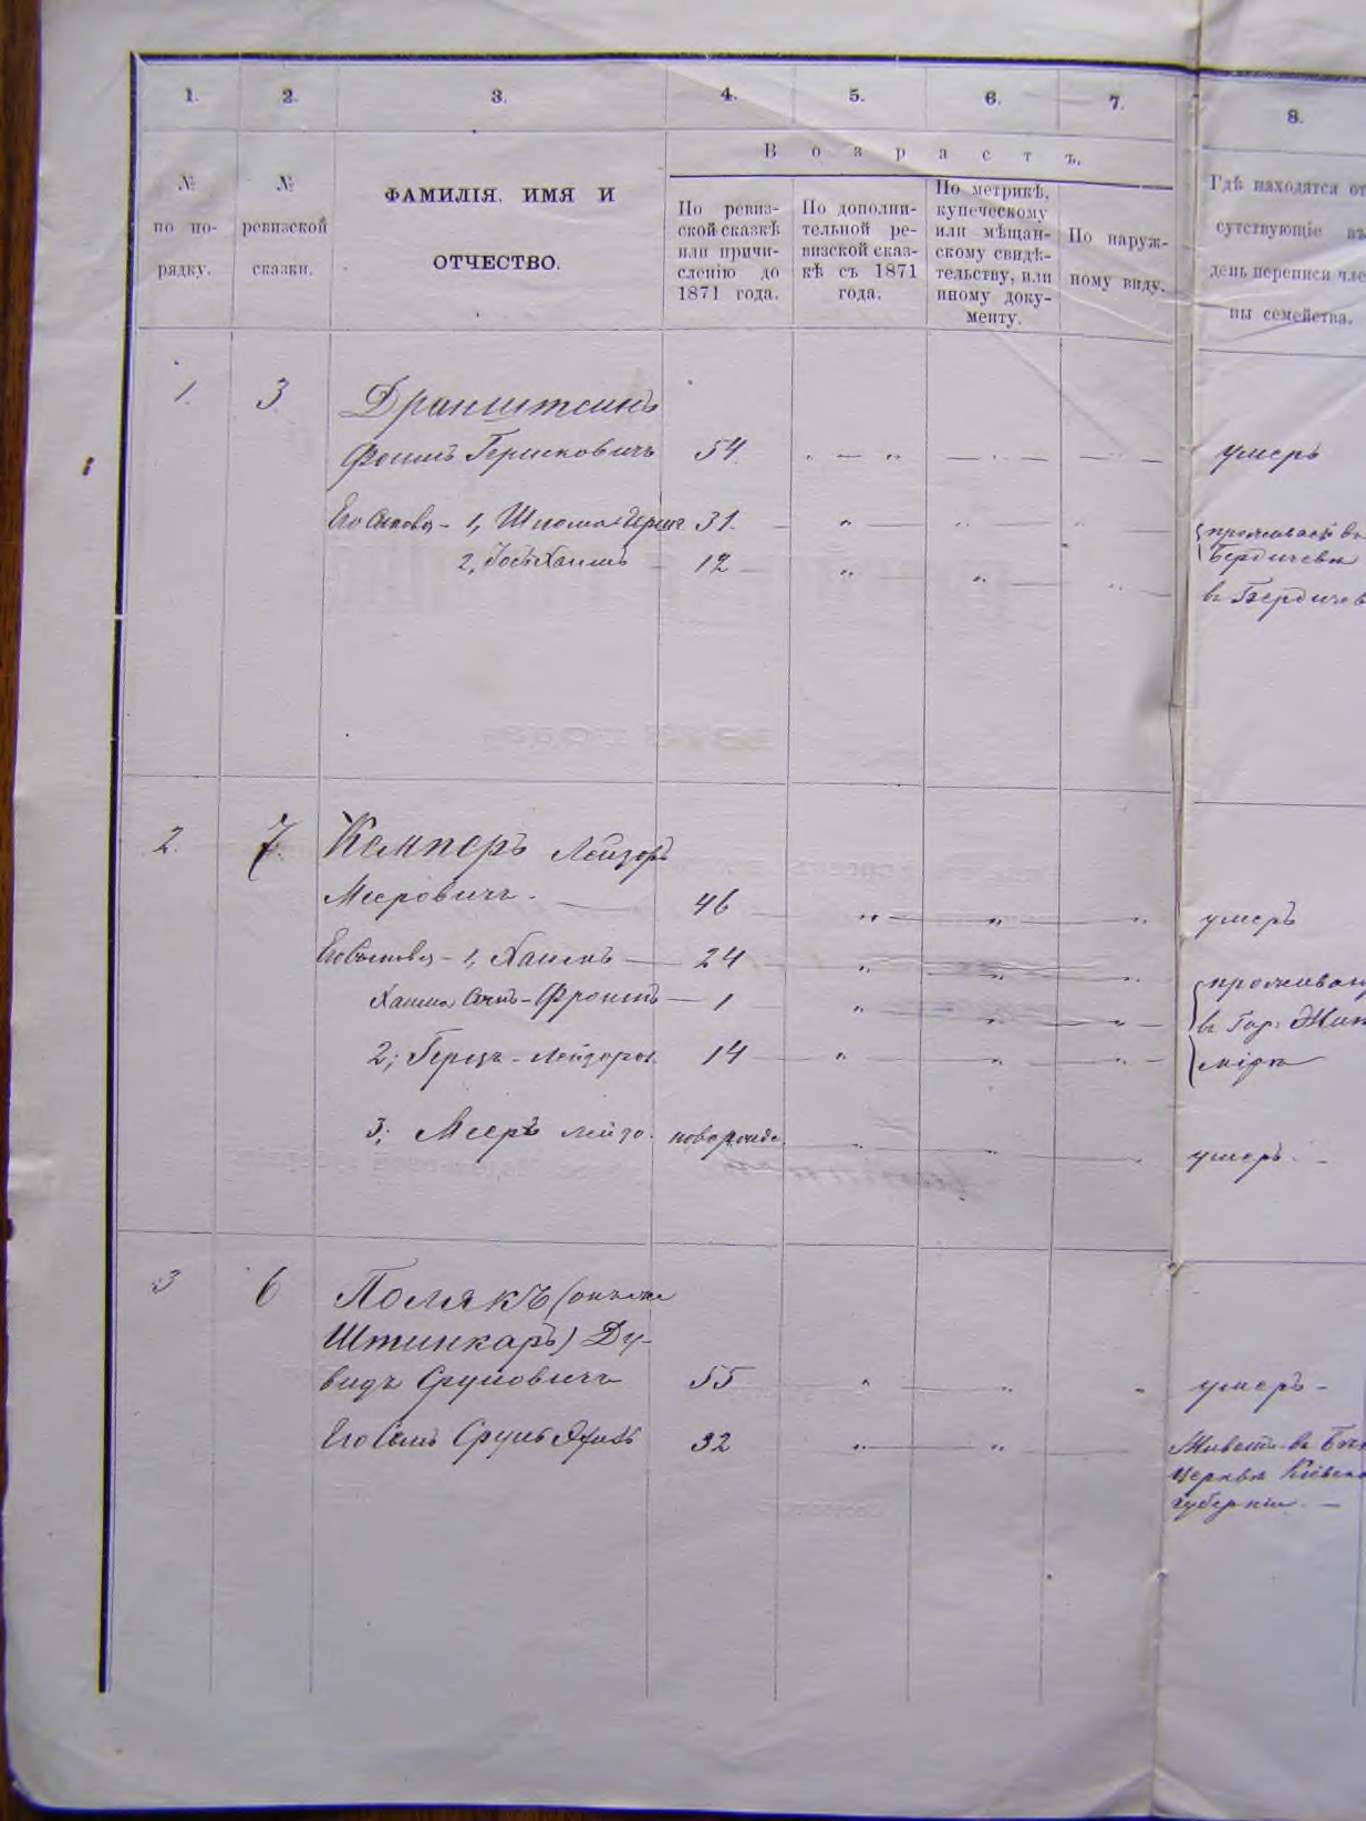 1. 2. 3. 4. 5. 6. 7. 8.
Возрастъ.
№ по по-
рядку.
№
ревизской
сказки.
ФАМИЛІЯ, ИМЯ И
ОТЧЕСТВО.
По ревиз-
ской сказкѣ
или причи-
сленію до
1871 года.
По дополни-
тельной ре-
визской сказ-
кѣ съ 1871
года.
По метрикѣ,
купеческому
или мѣщан-
скому свидѣ-
тельству, или
иному доку-
менту.
По наруж-
ному виду.
Гдѣ находятся от
сутствующіе въ
день переписи чле
ны семейства.
1. 3
Дранштеинъ
Гершковичъ 54 " " умеръ
Его Сыновья - 1, Шлома Герш 31 " " " проживаетъ въ
Бердичевѣ
2, Хаимъ 12 " " " въ Бердичев
2. 7.
Кемперъ Лейзоръ
Мееровичъ. 46 " " " умеръ
Его Сыновья - 1, Хаимъ 24 " " " проживаю
Хаима Сынъ - Фроимъ 1 " " " въ Гор. Жит
2, Герцъ - Лейзоров. 14 " " " мірѣ
3, Мееръ Лейзо. поворожде. " " умеръ.
3 6
Полякъ (онъ же
Штинкаръ) Ду-
видъ Сруловичъ 55 " " " умеръ -
Его Сынъ Сруль 32 " " Живетъ въ Бѣл
Церквѣ Кіевско
губерніи. -